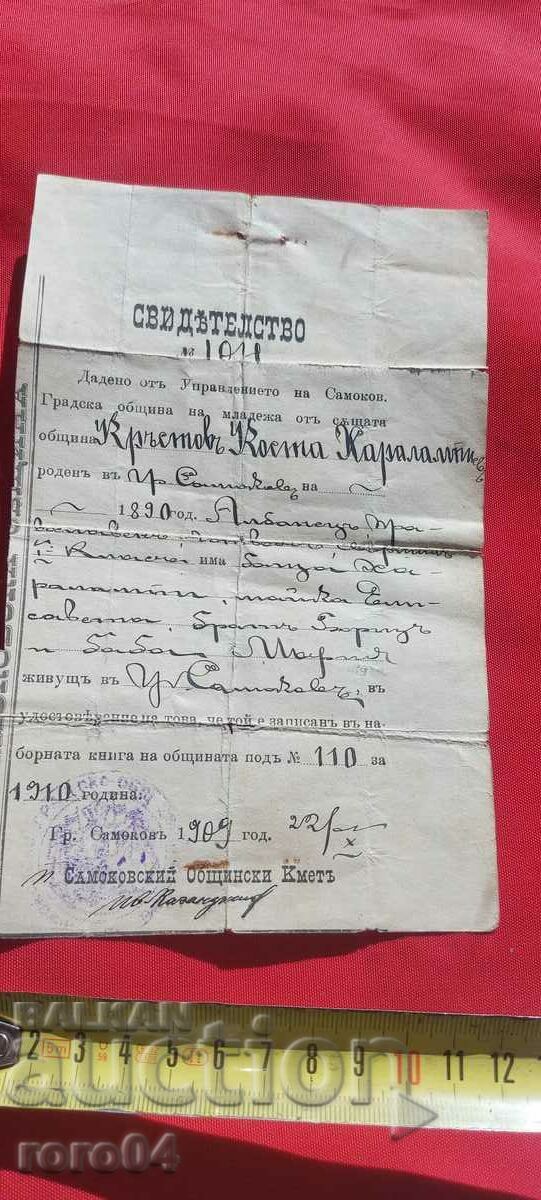 СВИДѢТЕЛСТВО
№
Дадено отъ Управлението на Самоков.
Градска община на младежа отъ сѫщата
община Кръстовъ Коста Хараламп
роденъ въ гр. Самоковъ на
1890 год. Албанецъ
има баща Ха-
майка Ели-
савета, братъ
и баба Мария
живущъ въ гр. Самоковъ, въ
удостовѣрение на това, че той е записанъ въ на-
борната книга на общината подъ № 110 за
1910 година.
Гр. Самоковъ 1909 год. 22/ X
Самоковский Общински Кметъ
2 3 4 5 6 7 8 9 10 11 12
BALKAN
auction
roro04